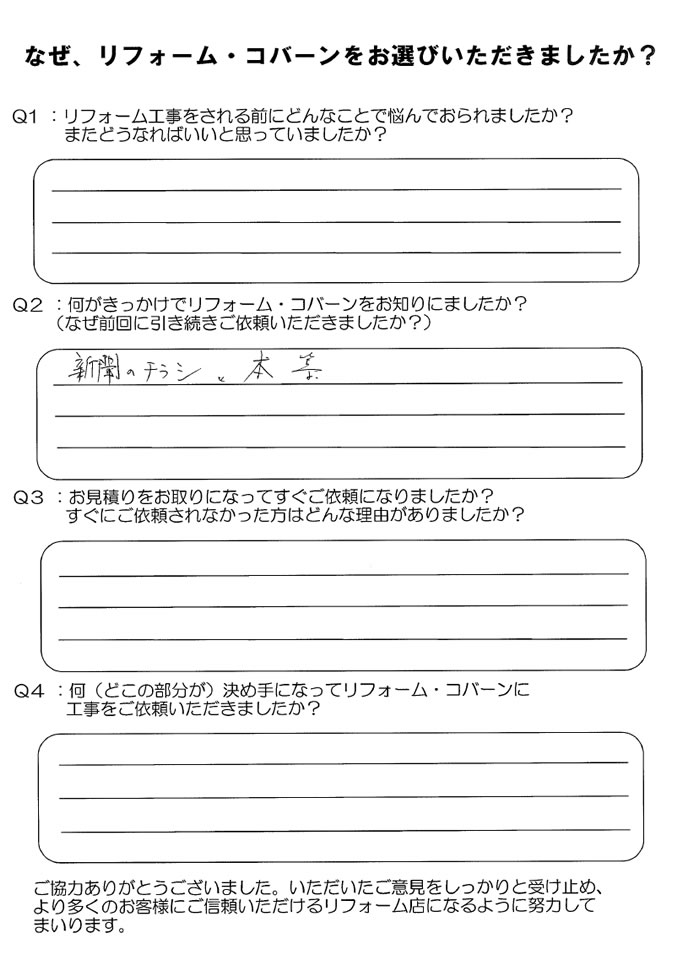 なぜ、リフォーム・コバーンをお選びいただきましたか？
Q1 ：リフォーム工事をされる前にどんなことで悩んでおられましたか？
またどうなればいいと思っていましたか？
Q2 ：何がきっかけでリフォーム・コバーンをお知りにましたか？
（なぜ前回に引き続きご依頼いただきましたか？）
新聞のチラシ と 本
Q3 ：お見積りをお取りになってすぐご依頼になりましたか？
すぐにご依頼されなかった方はどんな理由がありましたか？
Q4 ：何（どこの部分が）決め手になってリフォーム・コバーンに
工事をご依頼いただきましたか？
ご協力ありがとうございました。いただいたご意見をしっかりと受け止め、
より多くのお客様にご信頼いただけるリフォーム店になるように努力して
まいります。